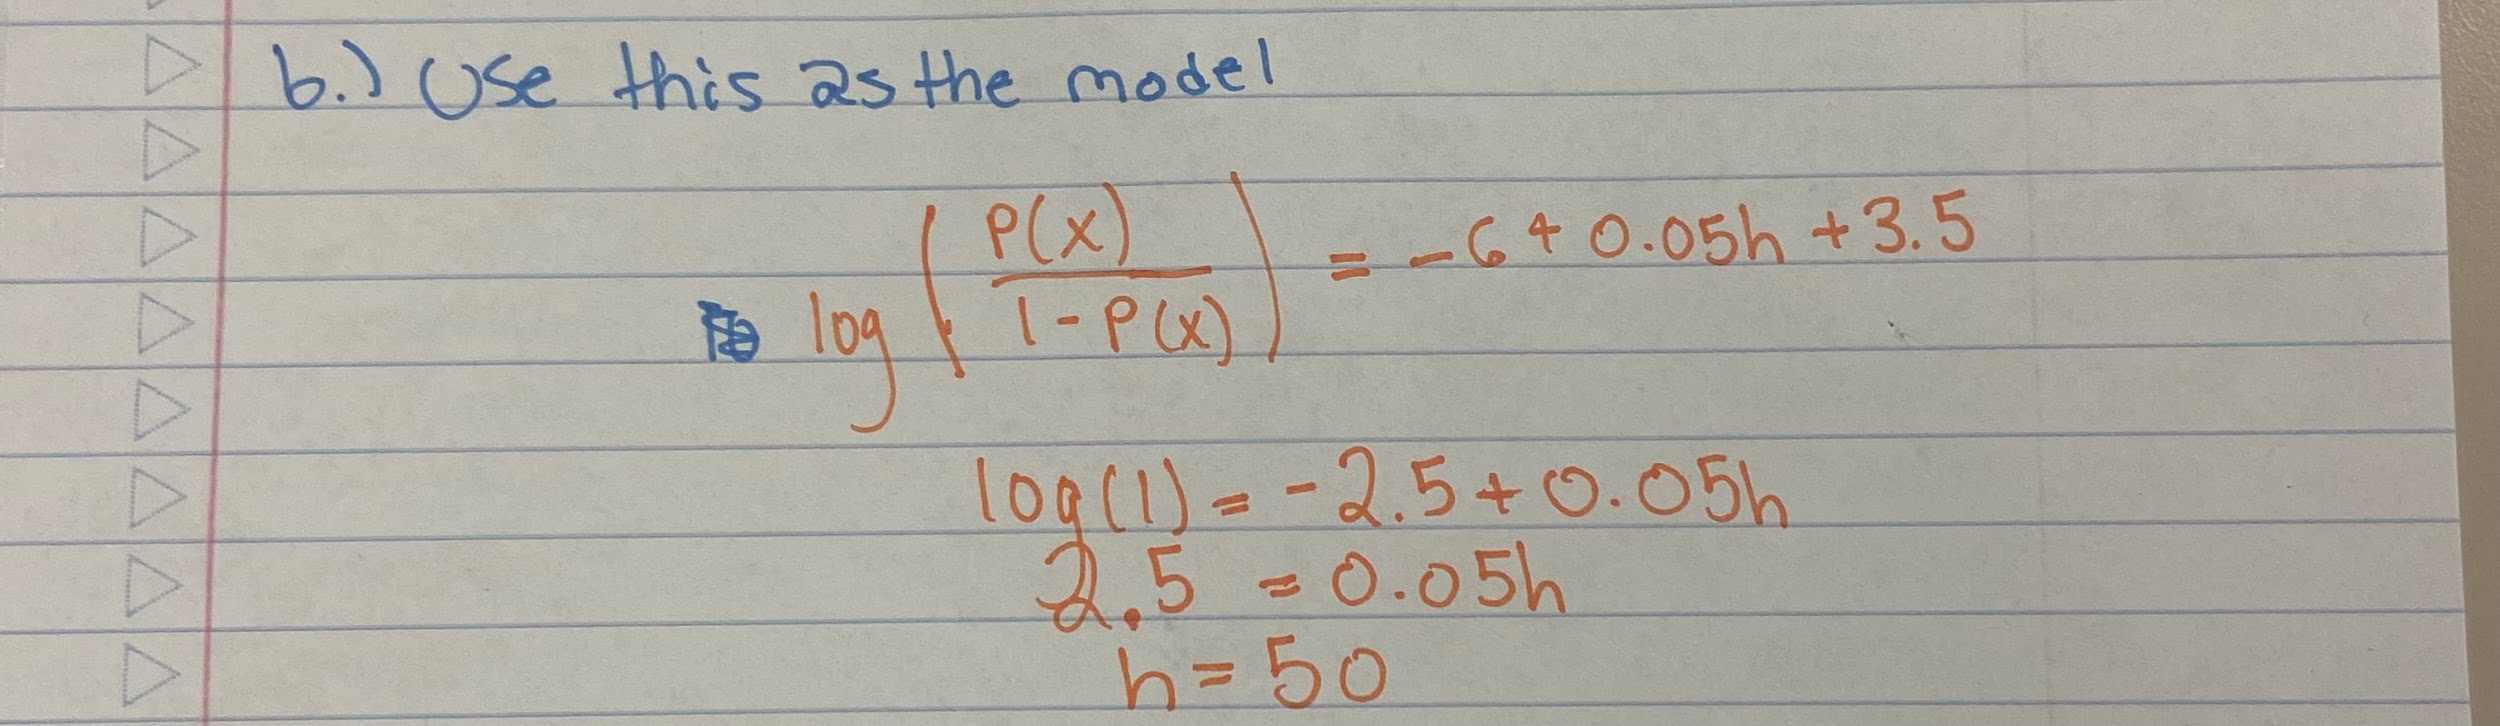 b.) Use this as the model
log ( P(x) / 1 - P(x) ) = -6 + 0.05h + 3.5
log(1) = -2.5 + 0.05h
2.5 = 0.05h
h = 50